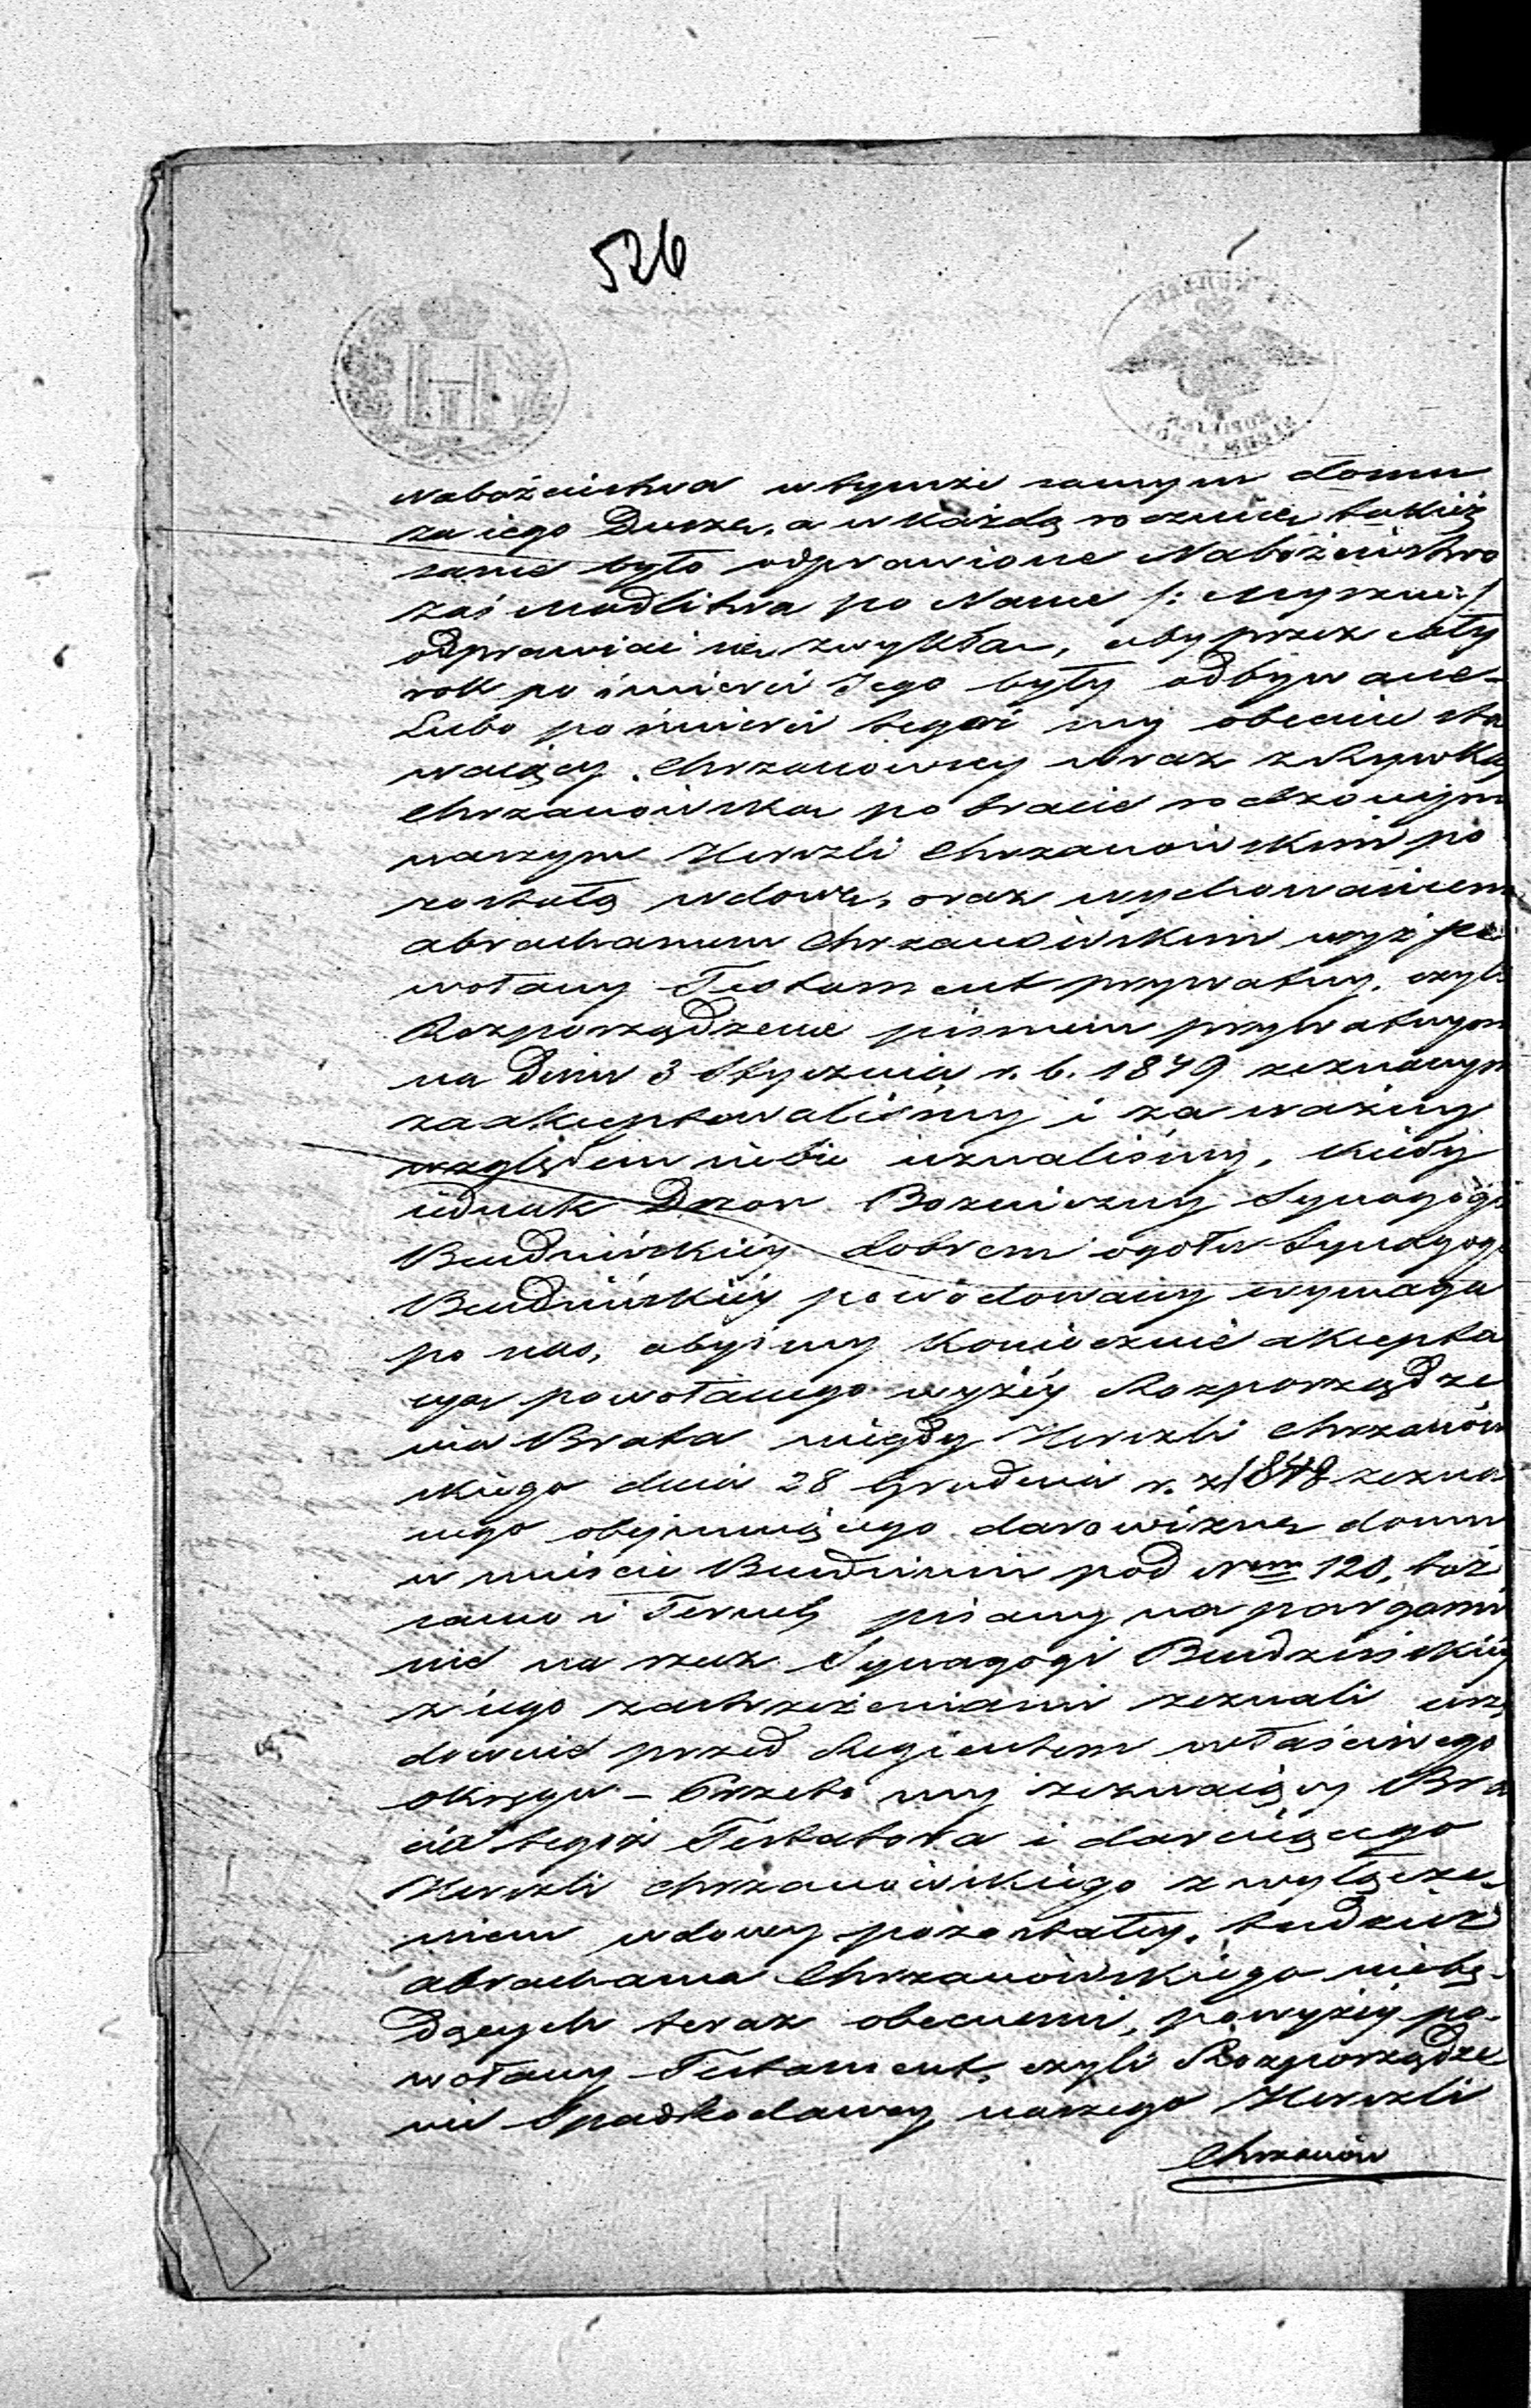 526
Nabożeństwa w tymże samym domu
za iego Duszę, a w każdą rocznicę takież
same było odprawione Nabożeństwo
zaś Modlitwa po Name /: Myszne :/
odprawiać się zwykła, aby przez cały
rok po śmierci Jego były odbywane –
Lubo po śmierci tegoż my obecnie sta
waiący Chrzanowscy wraz z Rywką
Chrzanowską po bracie rodzonym
naszym Herszli Chrzanowskim po
zostałą wdową, oraz wychowańcem
Abrahamem Chrzanowskim wyż po
wołany Testament prywatny, czyli
Rozporządzenie pismem prywatnym
na Dniu 3 Stycznia r. b. 1849 zeznanym
zaakceptowaliśmy i za ważny
względem siebie uznaliśmy, kiedy
iednak Dozor Bozniczny Synagogi
Bendzińskiéy dobrem ogołu Synagogi
Bendzińskiéy powodowany wymaga
po nas, abyśmy koniecznie akcepta
cyą powołanego wyżéy Rozporządze
nia Brata niegdy Herszli Chrzanow
skiego dnia 28 Grudnia r. z. 1848 zezna
nego obejmuiącego darowiznę domu
w mieście Bendzinie pod Nrem 120, toż
samo i pisany na pargami
nie na rzecz Synagogi Bendzińskiéy
z iego zastrzeżeniami zeznali urzę
downie przed Regientem właściwego
Okręgu – Przeto my zeznaiący Bra
cia tegoż Testatora i daruiącego
Herszli Chrzanowskiego z wyłącze
niem wdowy pozostałéy, tudzież
Abrahama Chrzanowskiego niebę
dących teraz obecnemi, powyżéy po
wołany Testament, czyli Rozporządze
nie Spadkodawcy naszego Herszli
Chrzanow